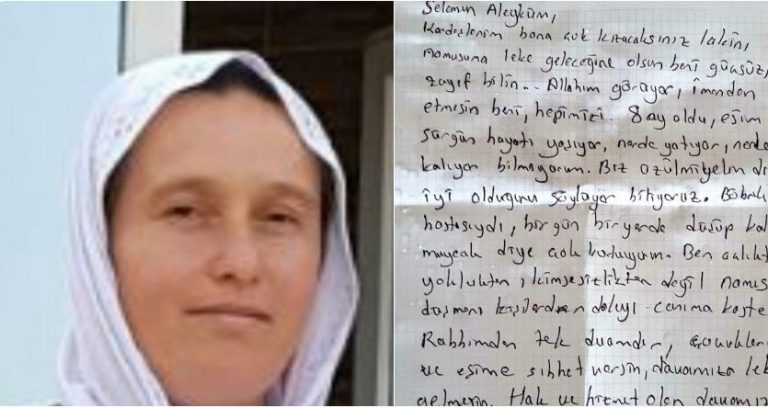 Selamün Aleyküm,
Kardeşlerim bana çok kızacaksınız lakin,
namusuma leke geleceğine olsun beni güçsüz,
zayıf bilin... Allahım görüyor, imandan
etmesin beni, hepimizi. 8 ay oldu, eşim
sürgün hayatı yaşıyor, nerde yatıyor, nerde
kalıyor bilmiyorum. Biz üzülmiyelim di
iyi olduğunu söylüyor biliyoruz. Böbrek
hastasıydı, bir gün bir yerde düşüp kal
mıyacak diye çok korkuyorum. Ben
yokluktan, kimsesizlikten değil namus
düşmanı kişilerden dolayı canıma
Rabbimden tek duamdır, çocuklar
ve eşime sıhhat versin, davamıza lek
gelmesin. Hak ve hizmet olan davamız